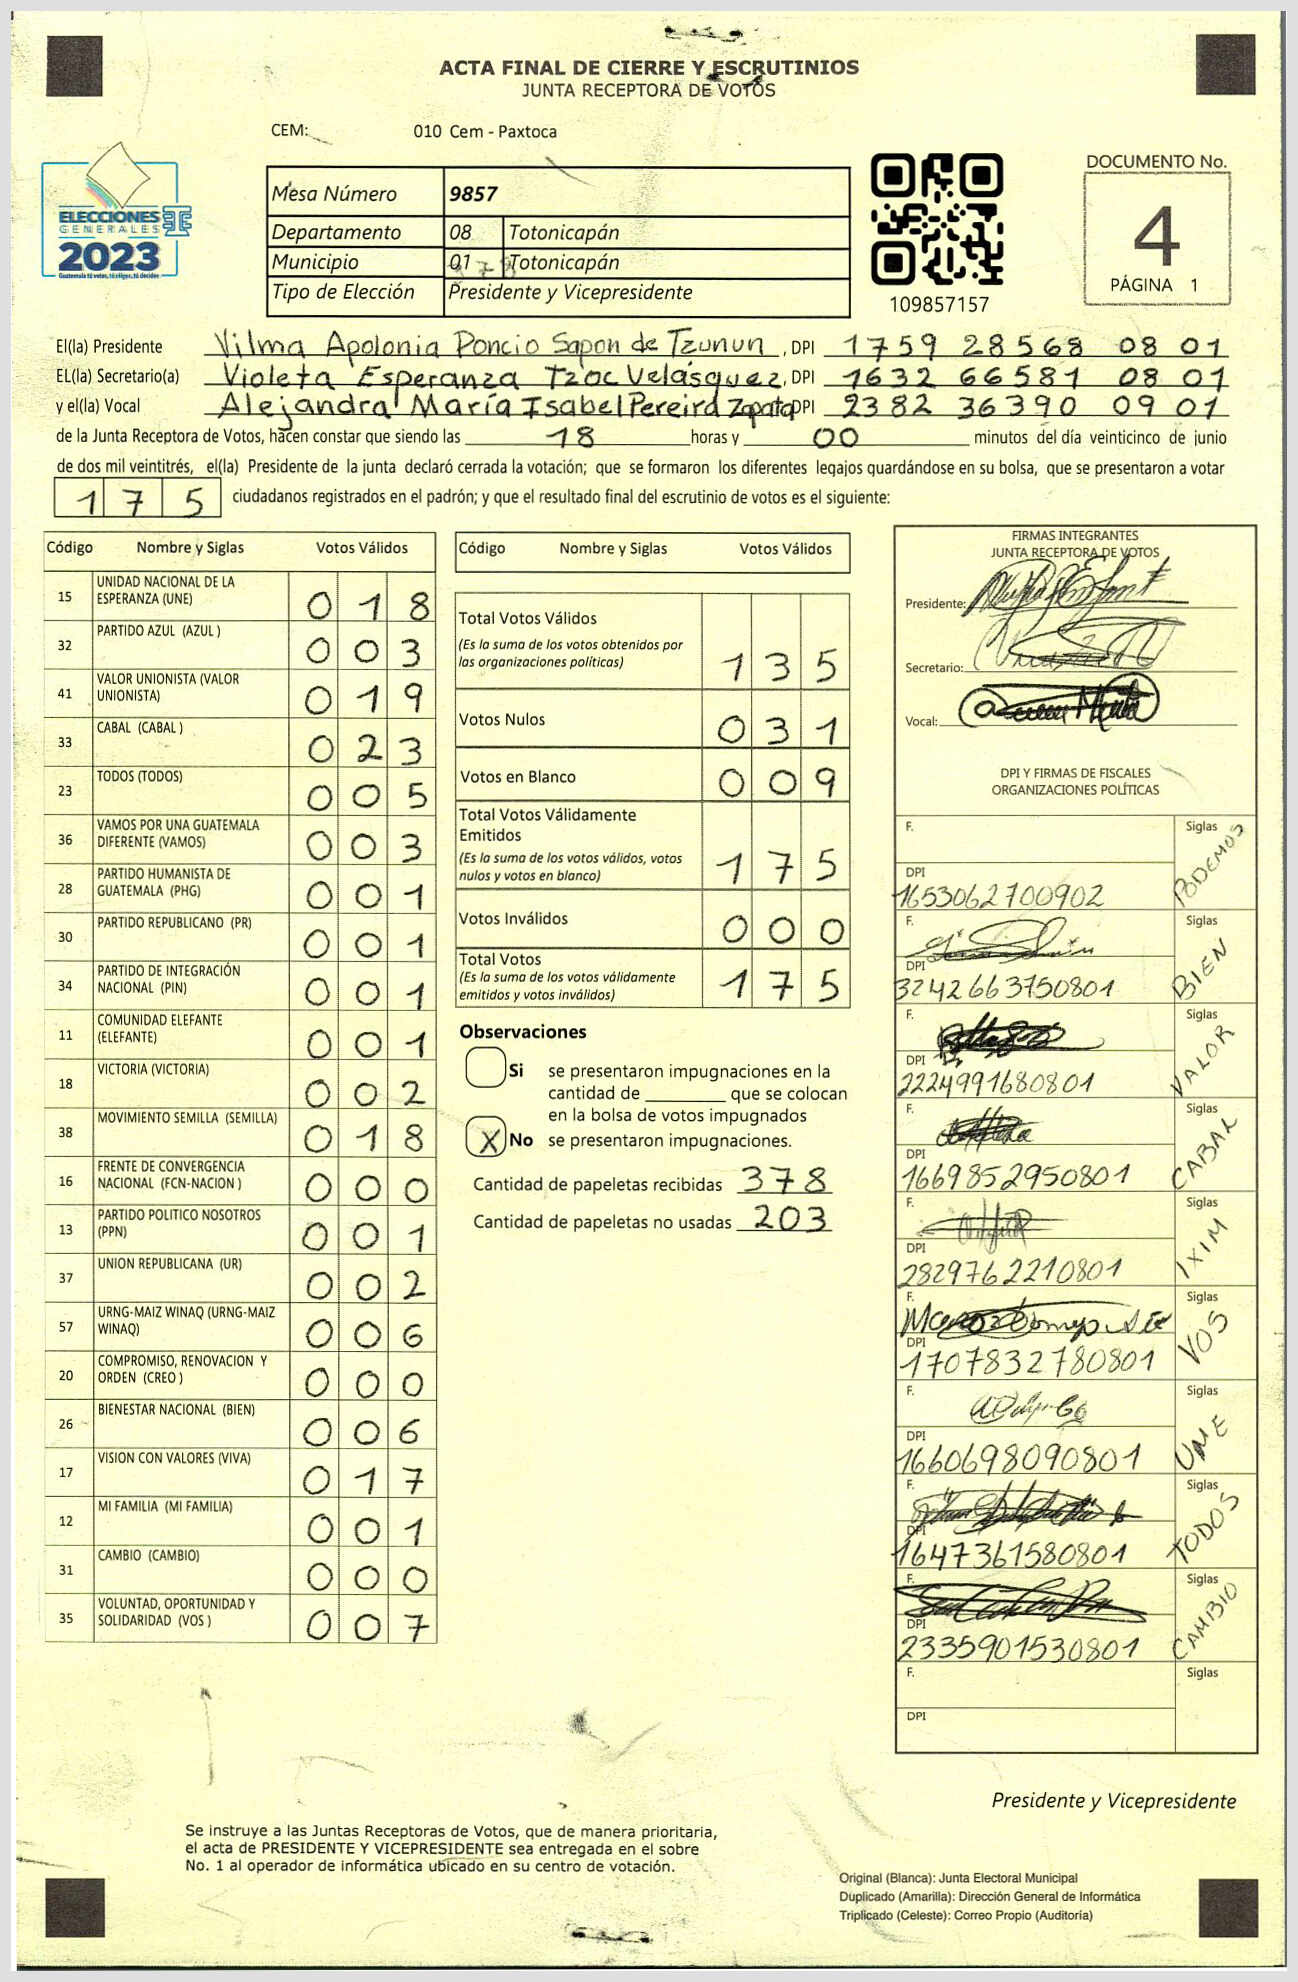 ACTA FINAL DE CIERRE Y ESCRUTINIOS
JUNTA RECEPTORA DE VOTOS
CEM: 010 Cem - Paxtoca
ELECCIONES
GENERALES
2023
Guatemala tú votas, tú eliges, tú decides
Mesa Número 9857
Departamento 08 Totonicapán
Municipio 01 Totonicapán
Tipo de Elección Presidente y Vicepresidente
109857157
DOCUMENTO No.
4
PÁGINA 1
El(la) Presidente Vilma Apolonia Poncio Sapon de Tzunun, DPI 1759 28568 08 01
EL(la) Secretario(a) Violeta Esperanza Tzoc Velásquez, DPI 1632 66581 08 01
y el(la) Vocal Alejandra María Isabel Pereira Zapata DPI 2382 36390 09 01
de la Junta Receptora de Votos, hacen constar que siendo las 18 horas y 00 minutos del día veinticinco de junio
de dos mil veintitrés, el(la) Presidente de la junta declaró cerrada la votación; que se formaron los diferentes legajos guardándose en su bolsa, que se presentaron a votar
175 ciudadanos registrados en el padrón; y que el resultado final del escrutinio de votos es el siguiente:
Código Nombre y Siglas Votos Válidos
15 UNIDAD NACIONAL DE LA ESPERANZA (UNE) 018
32 PARTIDO AZUL (AZUL ) 003
41 VALOR UNIONISTA (VALOR UNIONISTA) 019
33 CABAL (CABAL ) 023
23 TODOS (TODOS) 005
36 VAMOS POR UNA GUATEMALA DIFERENTE (VAMOS) 003
28 PARTIDO HUMANISTA DE GUATEMALA (PHG) 001
30 PARTIDO REPUBLICANO (PR) 001
34 PARTIDO DE INTEGRACIÓN NACIONAL (PIN) 001
11 COMUNIDAD ELEFANTE (ELEFANTE) 001
18 VICTORIA (VICTORIA) 002
38 MOVIMIENTO SEMILLA (SEMILLA) 018
16 FRENTE DE CONVERGENCIA NACIONAL (FCN-NACION ) 000
13 PARTIDO POLITICO NOSOTROS (PPN) 001
37 UNION REPUBLICANA (UR) 002
57 URNG-MAIZ WINAQ (URNG-MAIZ WINAQ) 006
20 COMPROMISO, RENOVACION Y ORDEN (CREO ) 000
26 BIENESTAR NACIONAL (BIEN) 006
17 VISION CON VALORES (VIVA) 017
12 MI FAMILIA (MI FAMILIA) 001
31 CAMBIO (CAMBIO) 000
35 VOLUNTAD, OPORTUNIDAD Y SOLIDARIDAD (VOS ) 007
Código Nombre y Siglas Votos Válidos
Total Votos Válidos
(Es la suma de los votos obtenidos por las organizaciones políticas) 135
Votos Nulos 031
Votos en Blanco 009
Total Votos Válidamente Emitidos
(Es la suma de los votos válidos, votos nulos y votos en blanco) 175
Votos Inválidos 000
Total Votos
(Es la suma de los votos válidamente emitidos y votos inválidos) 175
Observaciones
Si se presentaron impugnaciones en la
cantidad de ________ que se colocan
en la bolsa de votos impugnados
X No se presentaron impugnaciones.
Cantidad de papeletas recibidas 378
Cantidad de papeletas no usadas 203
FIRMAS INTEGRANTES
JUNTA RECEPTORA DE VOTOS
Presidente:
Secretario:
Vocal:
DPI Y FIRMAS DE FISCALES
ORGANIZACIONES POLÍTICAS
F. Siglas PODEMOS
DPI 1653062700902
F. Siglas BIEN
DPI 3242663750801
F. Siglas VALOR
DPI 2224991680801
F. Siglas CABAL
DPI 1669852950801
F. Siglas IXIM
DPI 2829762210801
F. Siglas VOS
DPI 1707832780801
F. Siglas UNE
DPI 1660698090801
F. Siglas TODOS
DPI 1647361580801
F. Siglas CAMBIO
DPI 2335901530801
F. Siglas
DPI
Presidente y Vicepresidente
Se instruye a las Juntas Receptoras de Votos, que de manera prioritaria,
el acta de PRESIDENTE Y VICEPRESIDENTE sea entregada en el sobre
No. 1 al operador de informática ubicado en su centro de votación.
Original (Blanca): Junta Electoral Municipal
Duplicado (Amarilla): Dirección General de Informática
Triplicado (Celeste): Correo Propio (Auditoría)